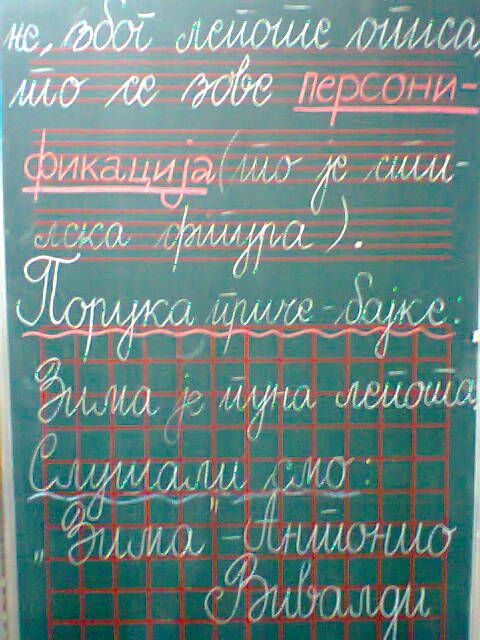 не, због лепоте описа,
то се зове персони-
фикација (то је сти-
лска фигура).
Порука приче-бајке:
Зима је пуна лепота,
Слушали смо:
„Зима" - Антонио
Вивалди